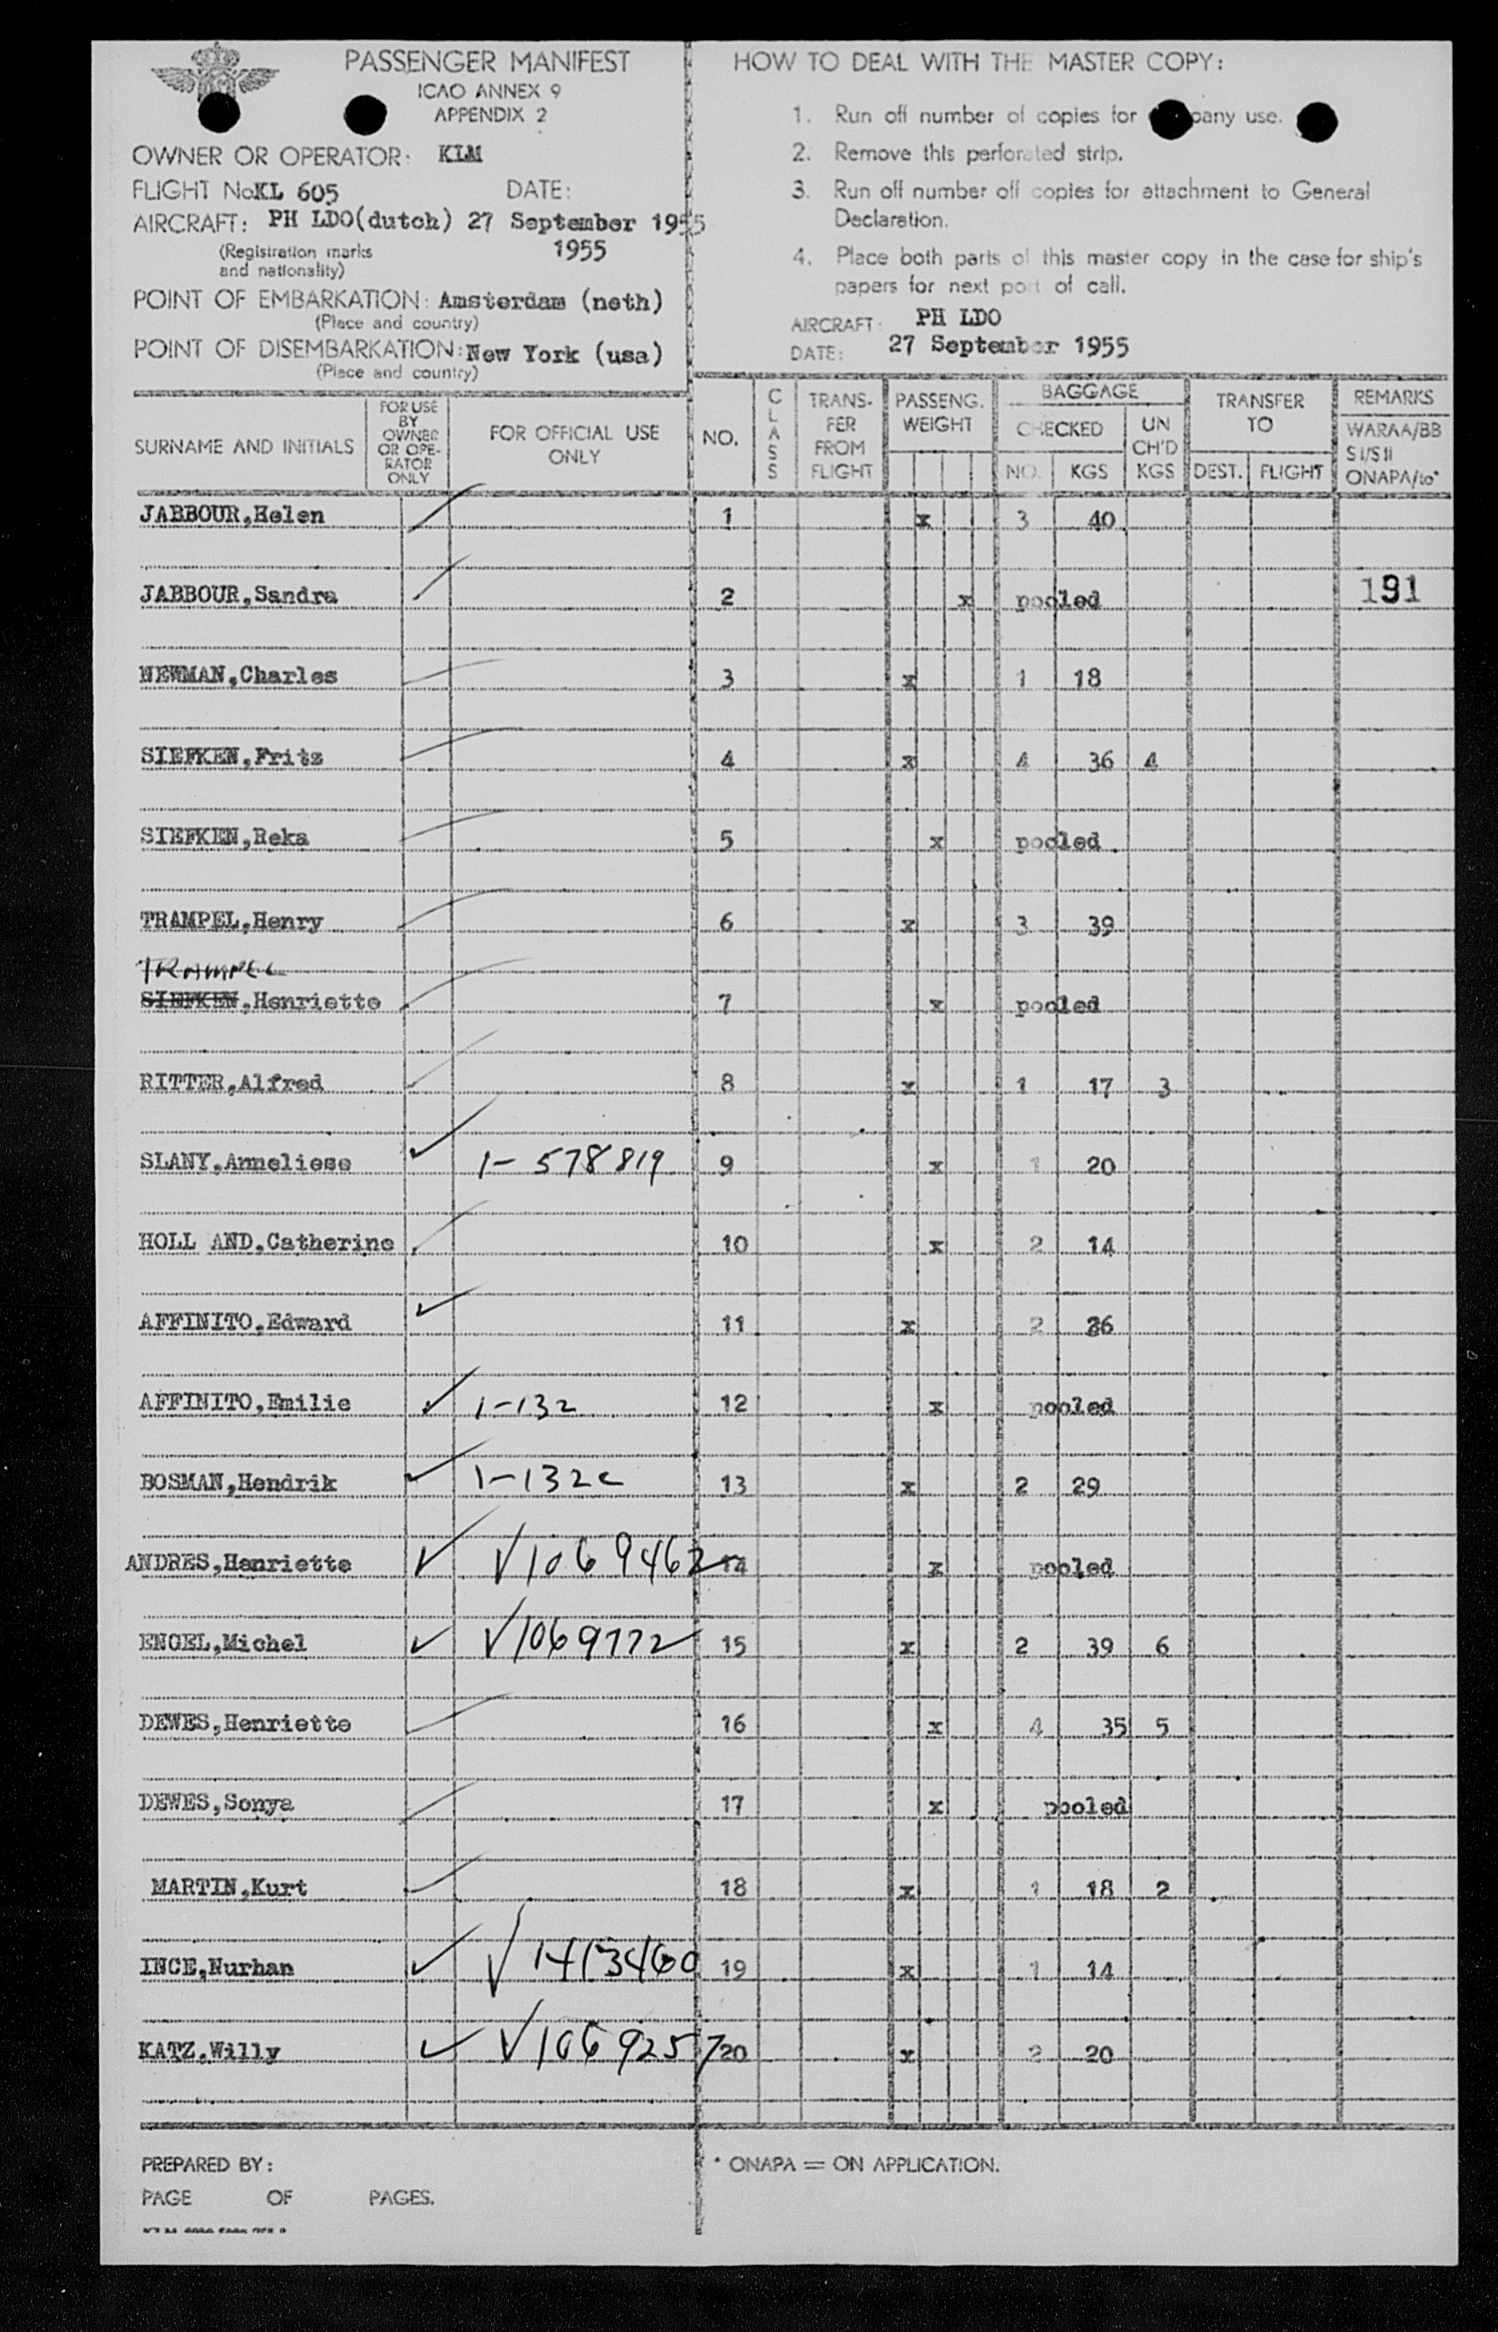 PASSENGER MANIFEST
ICAO ANNEX 9
APPENDIX 2
OWNER OR OPERATOR: KLM
FLIGHT No. KL 605 DATE:
AIRCRAFT: PH LDO(dutch) 27 September 1955
(Registration marks 1955
and nationality)
POINT OF EMBARKATION: Amsterdam (neth)
(Place and country)
POINT OF DISEMBARKATION: New York (usa)
(Place and country)
HOW TO DEAL WITH THE MASTER COPY:
1. Run off number of copies for company use.
2. Remove this perforated strip.
3. Run off number off copies for attachment to General
Declaration.
4. Place both parts of this master copy in the case for ship's
papers for next port of call.
AIRCRAFT: PH LDO
DATE: 27 September 1955
SURNAME AND INITIALS
FOR USE
BY
OWNER
OR OPE-
RATOR
ONLY
FOR OFFICIAL USE
ONLY
NO.
CLASS
TRANS-
FER
FROM
FLIGHT
PASSENG.
WEIGHT
BAGGAGE
CHECKED
NO. KGS
UN
CH'D
KGS
TRANSFER
TO
DEST. FLIGHT
REMARKS
WARAA/BB
SI/SII
ONAPA/to*
JABBOUR,Helen 1 x 3 40
JABBOUR,Sandra 2 x pooled 191
NEWMAN,Charles 3 x 1 18
SIEFKEN,Fritz 4 x 4 36 4
SIEFKEN,Reka 5 x pooled
TRAMPEL,Henry 6 x 3 39
TRAMPEL
SIEFKEN,Henriette 7 x pooled
RITTER,Alfred 8 x 1 17 3
SLANY,Anneliese ✓ 1-578819 9 x 1 20
HOLL AND,Catherine 10 x 2 14
AFFINITO,Edward ✓ 11 x 2 26
AFFINITO,Emilie ✓ 1-132 12 x pooled
BOSMAN,Hendrik ✓ 1-132c 13 x 2 29
ANDRES,Henriette ✓ ✓1069462 14 x pooled
ENGEL,Michel ✓ ✓1069772 15 x 2 39 6
DEWES,Henriette 16 x 4 35 5
DEWES,Sonya 17 x pooled
MARTIN,Kurt 18 x 1 18 2
INCE,Nurhan ✓ 19 x 1 14
KATZ,Willy ✓ ✓1069257 20 x 2 20
PREPARED BY:
PAGE OF PAGES.
* ONAPA = ON APPLICATION.